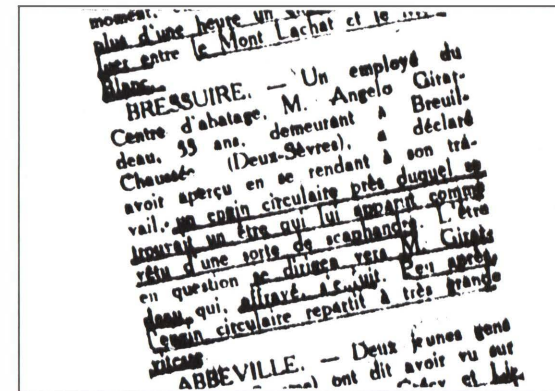 moment.
plus d'une heure un
entre le Mont Lachat et le
Blanc.
BRESSUIRE. — Un employé du
Centre d'abatage, M. Angelo Girar-
deau, 55 ans, demeurant à Breuil-
Chaussée (Deux-Sèvres), a déclaré
avoir aperçu en se rendant à son tra-
vail, un engin circulaire près duquel se
trouvait un être qui lui apparut comme
vêtu d'une sorte de scaphandre. L'être
en question se dirigea vers M. Girar-
deau, qui, effrayé, s'enfuit. Peu après,
l'engin circulaire repartit à très grande
vitesse.
ABBEVILLE. — Deux jeunes gens
ont dit avoir vu sur
et